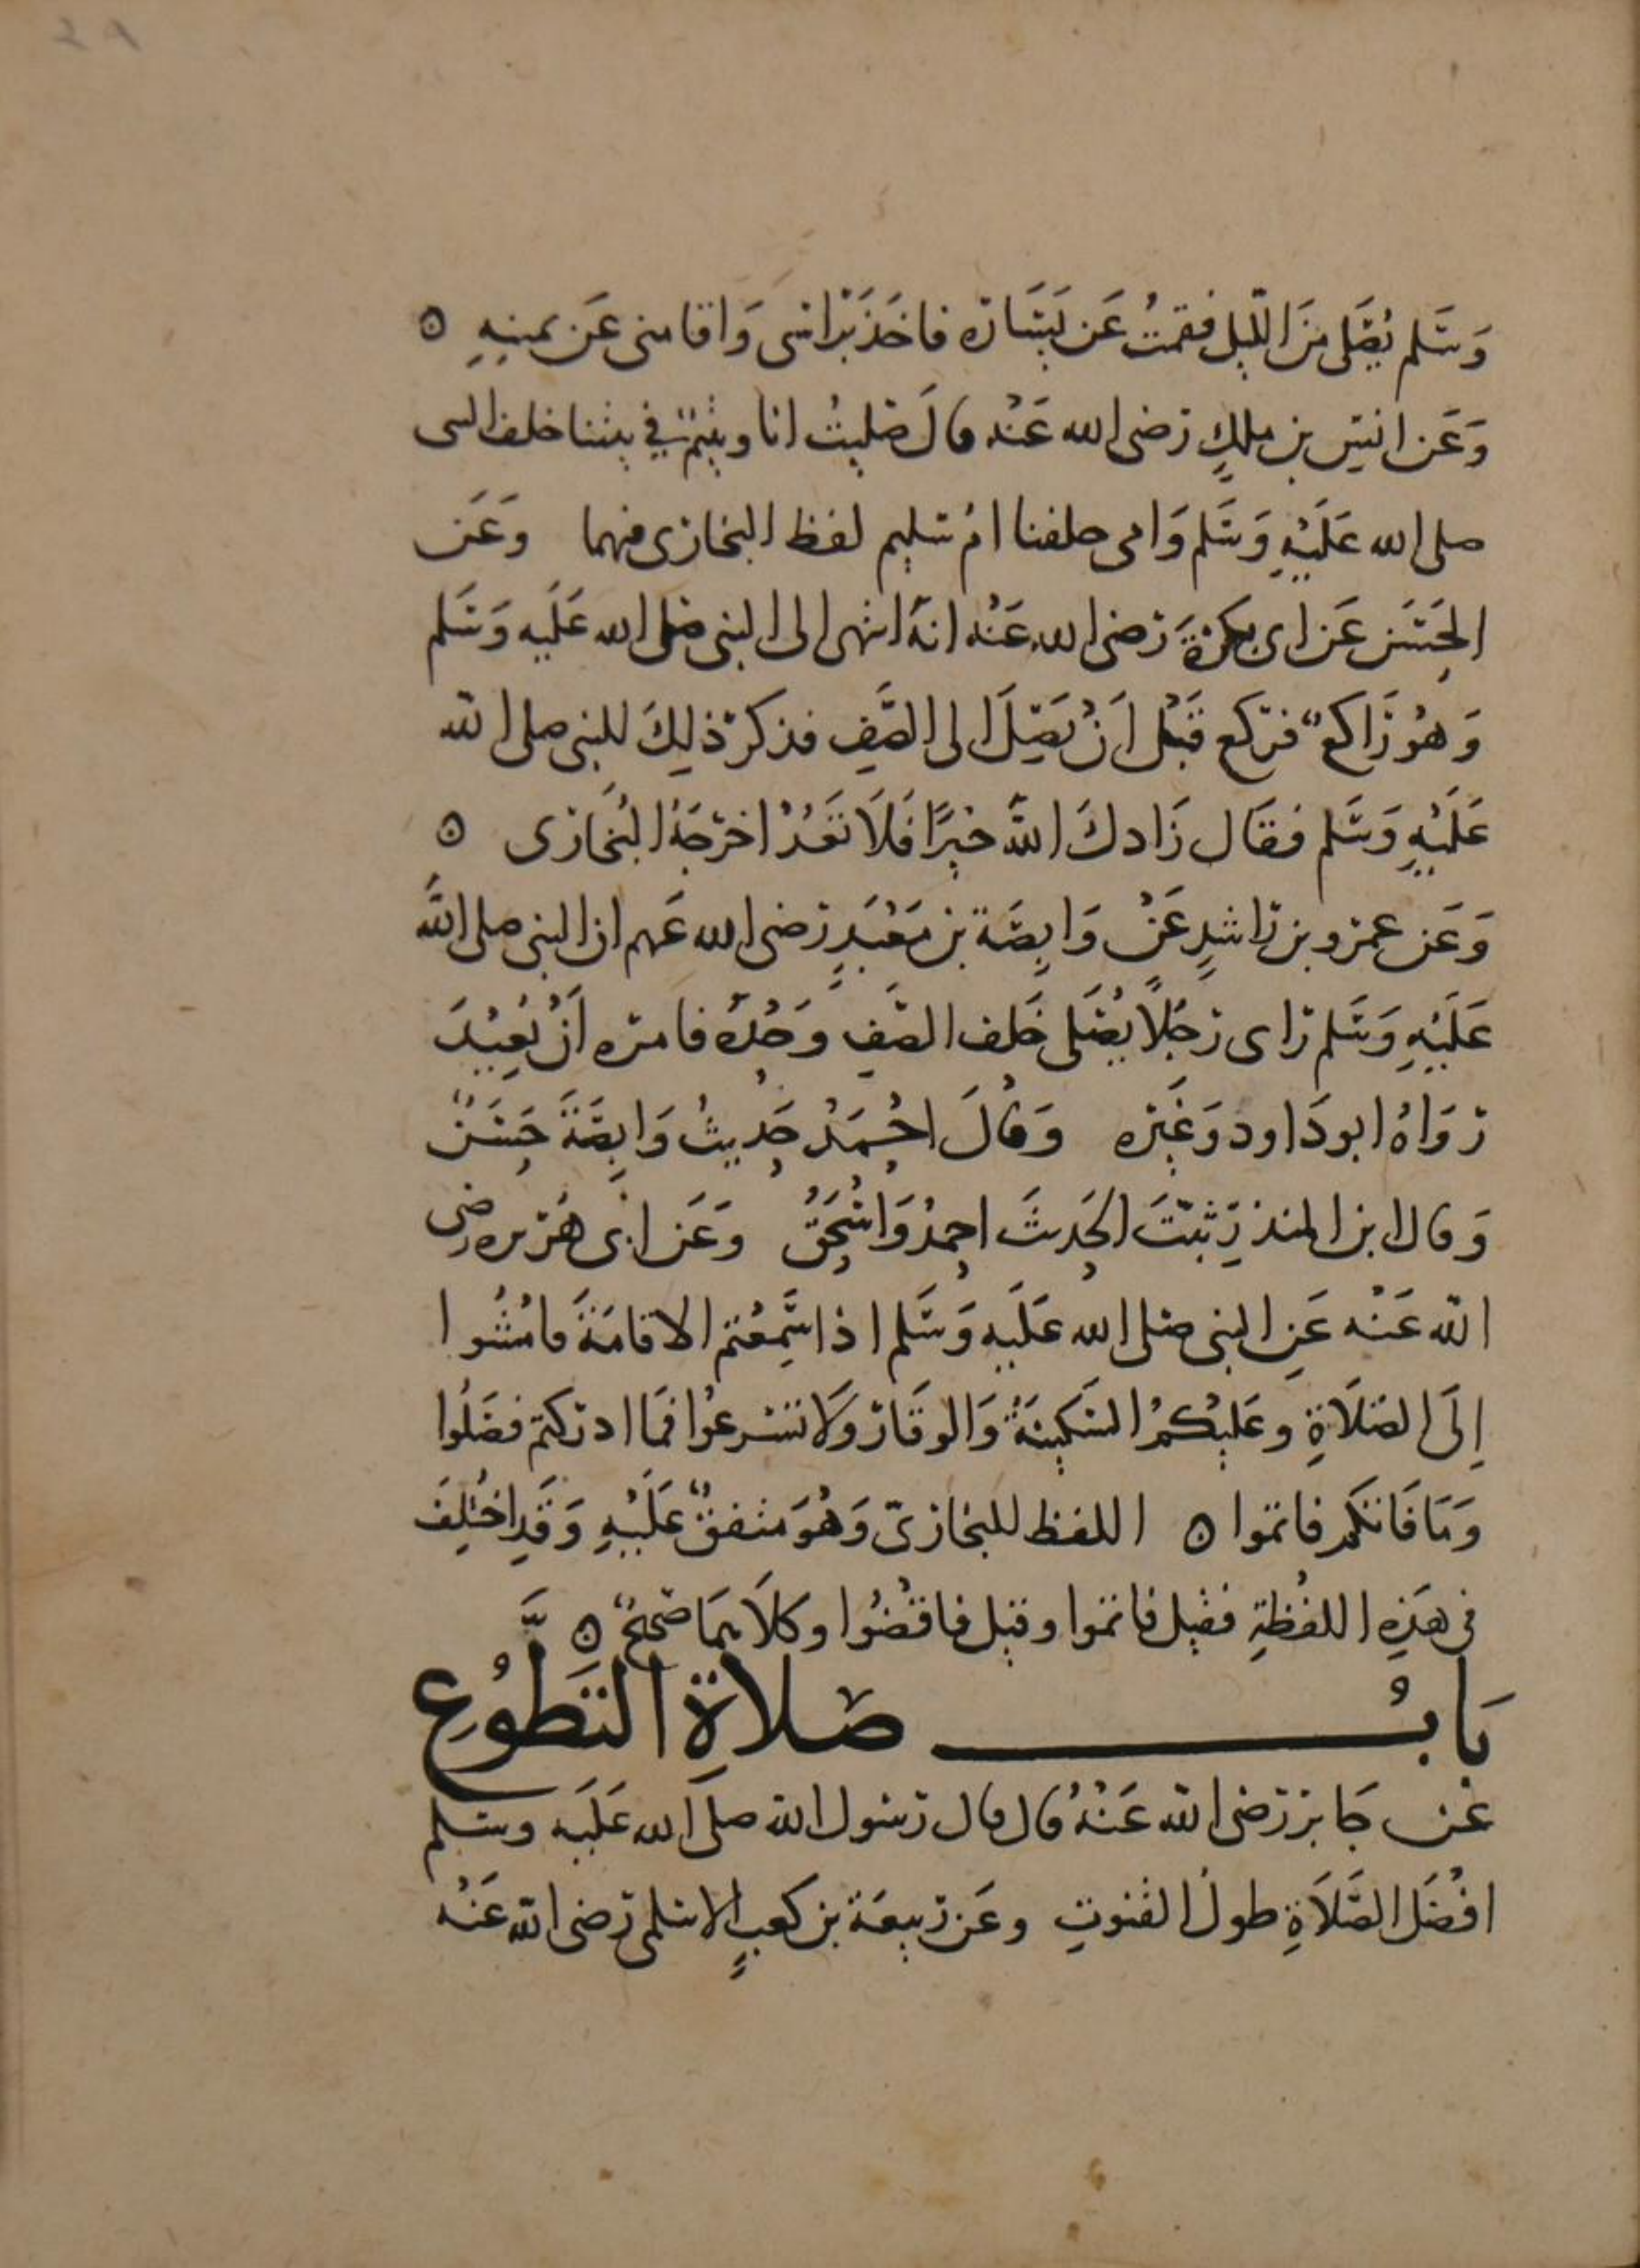 وَسَلم يُصَلى مِنَ الليل فقمتُ عَن يَسَاره فاخَذَ بَرَاسى وَاقامنى عَن يمينِهِ ه
وَعَن انسِ بن ملكٍ رضى الله عَنْه قالَ صَليتُ انا ويتيمٌ في بيتنا خلف النبى
صلى الله عَلَيْهِ وَسَلم وَامى خلفنا امُ سُليم لفظ البخارى فيهما وَعَن
الحَسَن عَن ابى بكرةَ رضى الله عَنْه انهُ انتهى الى النبى صَلى الله عَلَيه وَسَلم
وَهُوَ رَاكعٌ فرَكع قَبْل اَنْ يَصِلَ الى الصَفِ فذكر ذلِكَ للنبى صلى الله
عَلَيْهِ وَسَلم فقَال زَادكَ اللهُ خيرًا فَلَا تَعُدْ اخرَجَهُ البُخَارى ه
وَعَن عمرو بن راشدٍ عَنْ وَابِصَة بن مَعْبَدٍ رضى الله عَنهم ان النبى صلى اللهُ
عَلَيْهِ وَسَلم راى رَجُلًا يُصَلى خَلف الصَفِ وَحْدَهُ فامره اَنْ يُعِيْدَ
رَوَاهُ ابو دَاود وَغَيره وَقَالَ احْمَدُ حَدِيثُ وَابِصَةَ حَسَنٌ
وَقال ابن المنذرِ ثبّتَ الحَديثَ احمدُ وَاسْحَقُ وَعَن ابى هُرَيره رضى
الله عَنْه عَنِ النبى صَلى الله عَلَيهِ وَسَلم اذا سَمِعْتم الاقامَةَ فامْشُوا
اِلَى الصَلَاةِ وعَلَيْكمُ السَكينَةُ وَالوقَار وَلَا تسْرعُوا فمَا ادركتم فصَلُوا
وَمَا فَاتكم فاتموا ه اللفظ للبخارىّ وَهُوَ متفقٌ عَلَيْهِ وَقَدِ اختُلِفَ
فى هَذِهِ اللفْظةِ فقيل فاتموا وقيل فاقضُوا وكلَاهمَا صَحيحٌ ه
بَابُ صَلاةِ التَطَوُّعِ
عَن جَابرٍ رضى الله عَنْهُ قال قال رَسُول الله صلى الله عَلَيه وسَلم
افضَل الصَلَاةِ طولُ القنوتِ وعَن رَبيعَة بن كعبٍ الاسلمى رَضى الله عَنْه